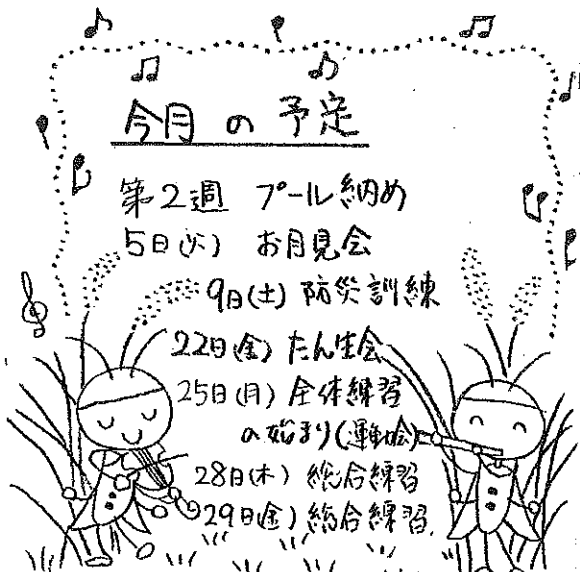 今月の予定
第2週 プール納め
5日(火) お月見会
9日(土) 防災訓練
22日(金) たん生会
25日(月) 全体練習
の始まり(運動会)
28日(木) 総合練習
29日(金) 総合練習